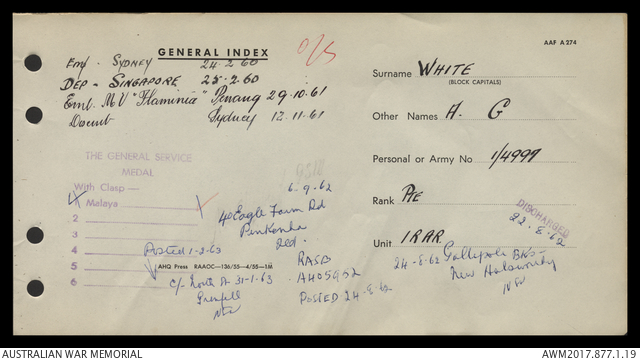 GENERAL INDEX
AAF A 274
O/S
Emp. SYDNEY 24-2-60
DEP - SINGAPORE 25-2-60
Emb. MV "Flaminia" Penang 29-10-61
Disemb Sydney 12-11-61
Surname WHITE
(BLOCK CAPITALS)
Other Names H. G
Personal or Army No 1/4999
Rank Pte
Unit 1 RAR
DISCHARGED
22-8-62
THE GENERAL SERVICE
MEDAL
With Clasp —
1 Malaya
2
3
4 Posted 1-2-63
5
6
AHQ Press RAACC—136/55—4/55—1M
6-9-62
Eagle Farm Rd
Pinkenba
Qld.
RASB
A405952
POSTED 24-8-62
24-8-62 Gallipoli Bks
New Holsworthy
NSW
31-1-63
Grenfell